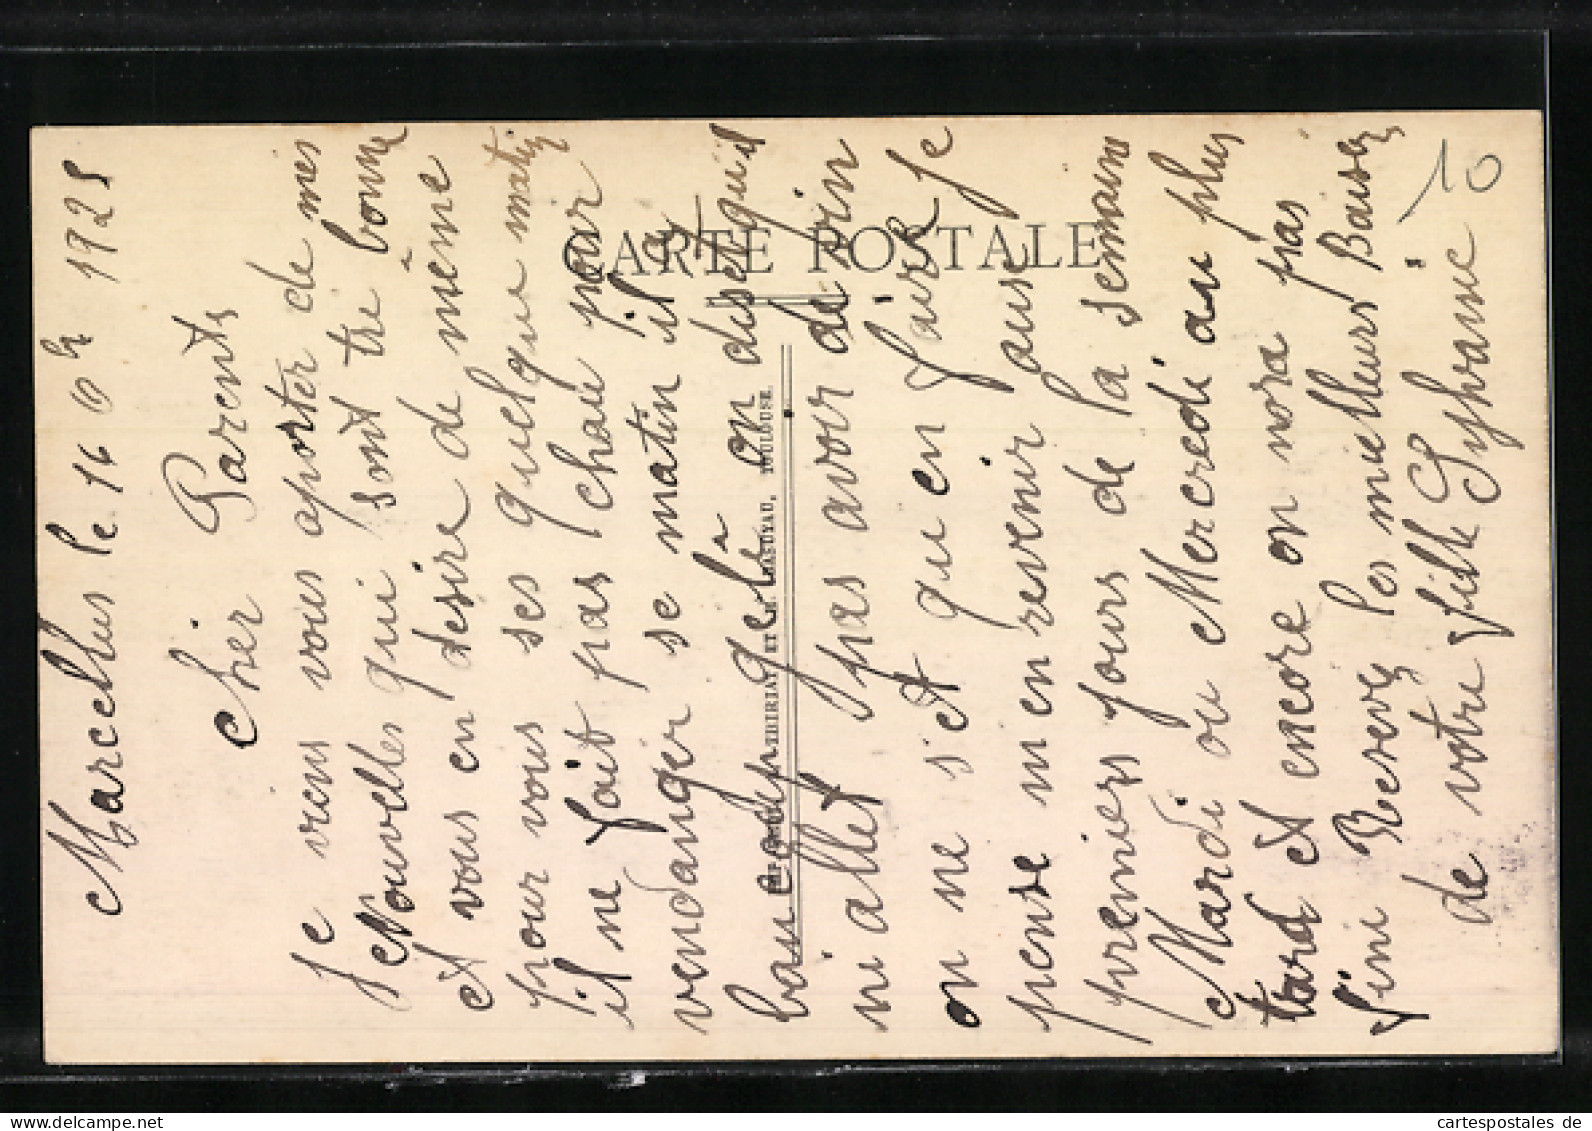 Marcellus le 16 9 bre 1928
Cher Parents
Je viens vous aporter de mes
Nouvelles qui sont trè bonne
et vous en désire de même
pour vous ses quelque matin
il ne fait pas chau par
vendanger se matin il a
bau gelè on diset qu'il
ni allet pas avoir de vin
on ne s'et qu en faire Je
pense m en revenir ause
premiers jours de la semaine
Mardi ou Mercredi au plus
tard et encore on nora pas
fini Resevez les meilleurs Baisers
de votre fille Sylvanie
10
CARTE POSTALE
THIRIAT ET TOULOUSE.
cartespostales de